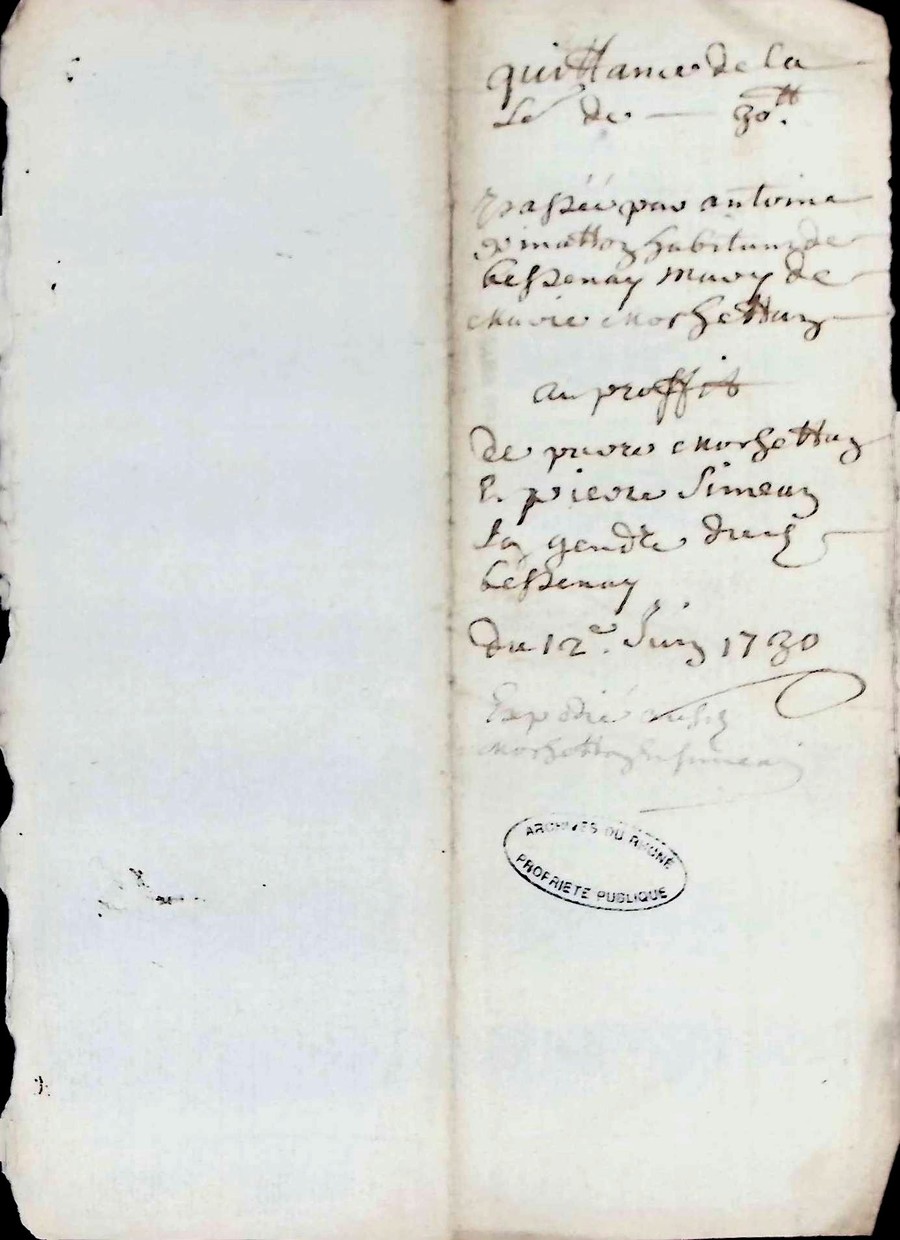 quittance de la
so.e de — 30.tt
passée par antoine
grimottoz habitant de
bessenay mary de
marie morgettoz
au proffit
de pierre morgettoz
& pierre Simeoz
soz gendre dud.
bessenay
du 12.e Juiz 1730
Expedié ausd.
morgettoz & simeoz
ARCHIVES DU RHONE
PROPRIETE PUBLIQUE